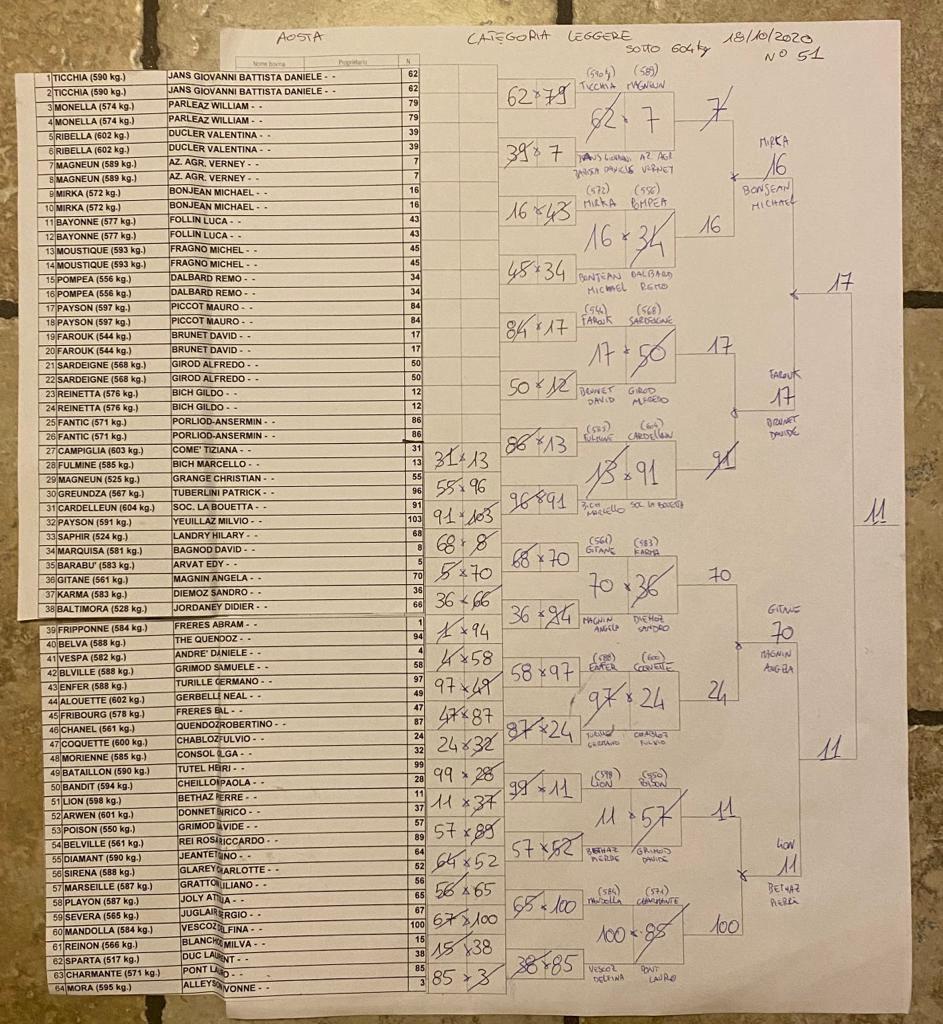 AOSTA CATEGORIA LEGGERE 18/10/2020
SOTTO 604 kg N° 51
Nome bovina Proprietario N
1 TICCHIA (590 kg.) JANS GIOVANNI BATTISTA DANIELE - - 62
2 TICCHIA (590 kg.) JANS GIOVANNI BATTISTA DANIELE - - 62
3 MONELLA (574 kg.) PARLEAZ WILLIAM - - 79
4 MONELLA (574 kg.) PARLEAZ WILLIAM - - 79
5 RIBELLA (602 kg.) DUCLER VALENTINA - - 39
6 RIBELLA (602 kg.) DUCLER VALENTINA - - 39
7 MAGNEUN (589 kg.) AZ. AGR. VERNEY - - 7
8 MAGNEUN (589 kg.) AZ. AGR. VERNEY - - 7
9 MIRKA (572 kg.) BONJEAN MICHAEL - - 16
10 MIRKA (572 kg.) BONJEAN MICHAEL - - 16
11 BAYONNE (577 kg.) FOLLIN LUCA - - 43
12 BAYONNE (577 kg.) FOLLIN LUCA - - 43
13 MOUSTIQUE (593 kg.) FRAGNO MICHEL - - 45
14 MOUSTIQUE (593 kg.) FRAGNO MICHEL - - 45
15 POMPEA (556 kg.) DALBARD REMO - - 34
16 POMPEA (556 kg.) DALBARD REMO - - 34
17 PAYSON (597 kg.) PICCOT MAURO - - 84
18 PAYSON (597 kg.) PICCOT MAURO - - 84
19 FAROUK (544 kg.) BRUNET DAVID - - 17
20 FAROUK (544 kg.) BRUNET DAVID - - 17
21 SARDEIGNE (568 kg.) GIROD ALFREDO - - 50
22 SARDEIGNE (568 kg.) GIROD ALFREDO - - 50
23 REINETTA (576 kg.) BICH GILDO - - 12
24 REINETTA (576 kg.) BICH GILDO - - 12
25 FANTIC (571 kg.) PORLIOD-ANSERMIN - - 86
26 FANTIC (571 kg.) PORLIOD-ANSERMIN - - 86
27 CAMPIGLIA (603 kg.) COME' TIZIANA - - 31
28 FULMINE (585 kg.) BICH MARCELLO - - 13
29 MAGNEUN (525 kg.) GRANGE CHRISTIAN - - 55
30 GREUNDZA (567 kg.) TUBERLINI PATRICK - - 96
31 CARDELLEUN (604 kg.) SOC. LA BOUETTA - - 91
32 PAYSON (591 kg.) YEUILLAZ MILVIO - - 103
33 SAPHIR (524 kg.) LANDRY HILARY - - 68
34 MARQUISA (581 kg.) BAGNOD DAVID - - 8
35 BARABU' (583 kg.) ARVAT EDY - - 5
36 GITANE (561 kg.) MAGNIN ANGELA - - 70
37 KARMA (583 kg.) DIEMOZ SANDRO - - 36
38 BALTIMORA (528 kg.) JORDANEY DIDIER - - 66
39 FRIPPONNE (584 kg.) FRERES ABRAM - - 1
40 BELVA (588 kg.) THE QUENDOZ - - 94
41 VESPA (582 kg.) ANDRE' DANIELE - - 4
42 BLVILLE (588 kg.) GRIMOD SAMUELE - - 58
43 ENFER (588 kg.) TURILLE GERMANO - - 97
44 ALOUETTE (602 kg.) GERBELLE NEAL - - 49
45 FRIBOURG (578 kg.) FRERES BAL - - 47
46 CHANEL (561 kg.) QUENDOZ ROBERTINO - - 87
47 COQUETTE (600 kg.) CHABLOZ FULVIO - - 24
48 MORIENNE (585 kg.) CONSOL OLGA - - 32
49 BATAILLON (590 kg.) TUTEL HENRI - - 99
50 BANDIT (594 kg.) CHEILLON PAOLA - - 28
51 LION (598 kg.) BETHAZ PIERRE - - 11
52 ARWEN (601 kg.) DONNET ENRICO - - 37
53 POISON (550 kg.) GRIMOD DAVIDE - - 57
54 BELVILLE (561 kg.) REI ROSA RICCARDO - - 89
55 DIAMANT (590 kg.) JEANTET GINO - - 64
56 SIRENA (588 kg.) GLAREY CHARLOTTE - - 52
57 MARSEILLE (587 kg.) GRATTON LILIANO - - 56
58 PLAYON (587 kg.) JOLY ATTILIA - - 65
59 SEVERA (565 kg.) JUGLAIR SERGIO - - 67
60 MANDOLLA (584 kg.) VESCOZ DELFINA - - 100
61 REINON (566 kg.) BLANCHOD MILVA - - 15
62 SPARTA (517 kg.) DUC LAURENT - - 38
63 CHARMANTE (571 kg.) PONT LAURO - - 85
64 MORA (595 kg.) ALLEYSON YVONNE - - 3
31 x 13
55 x 96
91 x 103
68 x 8
5 x 70
36 x 66
1 x 94
4 x 58
97 x 49
47 x 87
24 x 32
99 x 28
11 x 37
57 x 89
64 x 52
56 x 65
67 x 100
15 x 38
85 x 3
62 x 79
39 x 7
16 x 43
45 x 34
84 x 17
50 x 12
86 x 13
96 x 91
68 x 70
36 x 94
58 x 97
87 x 24
99 x 11
57 x 52
65 x 100
38 x 85
(590) (589)
TICCHIA MAGNEUN
62 x 7
JANS GIOVANNI AZ AGR
BATTISTA DANIELE VERNEY
(572) (556)
MIRKA POMPEA
16 x 34
BONJEAN DALBARD
MICHAEL REMO
(544) (568)
FAROUK SARDEIGNE
17 x 50
BRUNET GIROD
DAVID ALFREDO
(585) (604)
FULMINE CARDELLEUN
13 x 91
BICH MARCELLO SOC LA BOUETTA
(561) (583)
GITANE KARMA
70 x 36
MAGNIN DIEMOZ
ANGELA SANDRO
(588) (600)
ENFER COQUETTE
97 x 24
TURILLE CHABLOZ
GERMANO FULVIO
(598) (550)
LION POISON
11 x 57
BETHAZ GRIMOD
PIERRE DAVIDE
(584) (571)
MANDOLLA CHARMANTE
100 x 85
VESCOZ PONT
DELFINA LAURO
7
16
17
91
70
24
11
100
MIRKA
16
BONJEAN
MICHAEL
FAROUK
17
BRUNET
DAVIDE
GITANE
70
MAGNIN
ANGELA
LION
11
BETHAZ
PIERRE
17
11
11